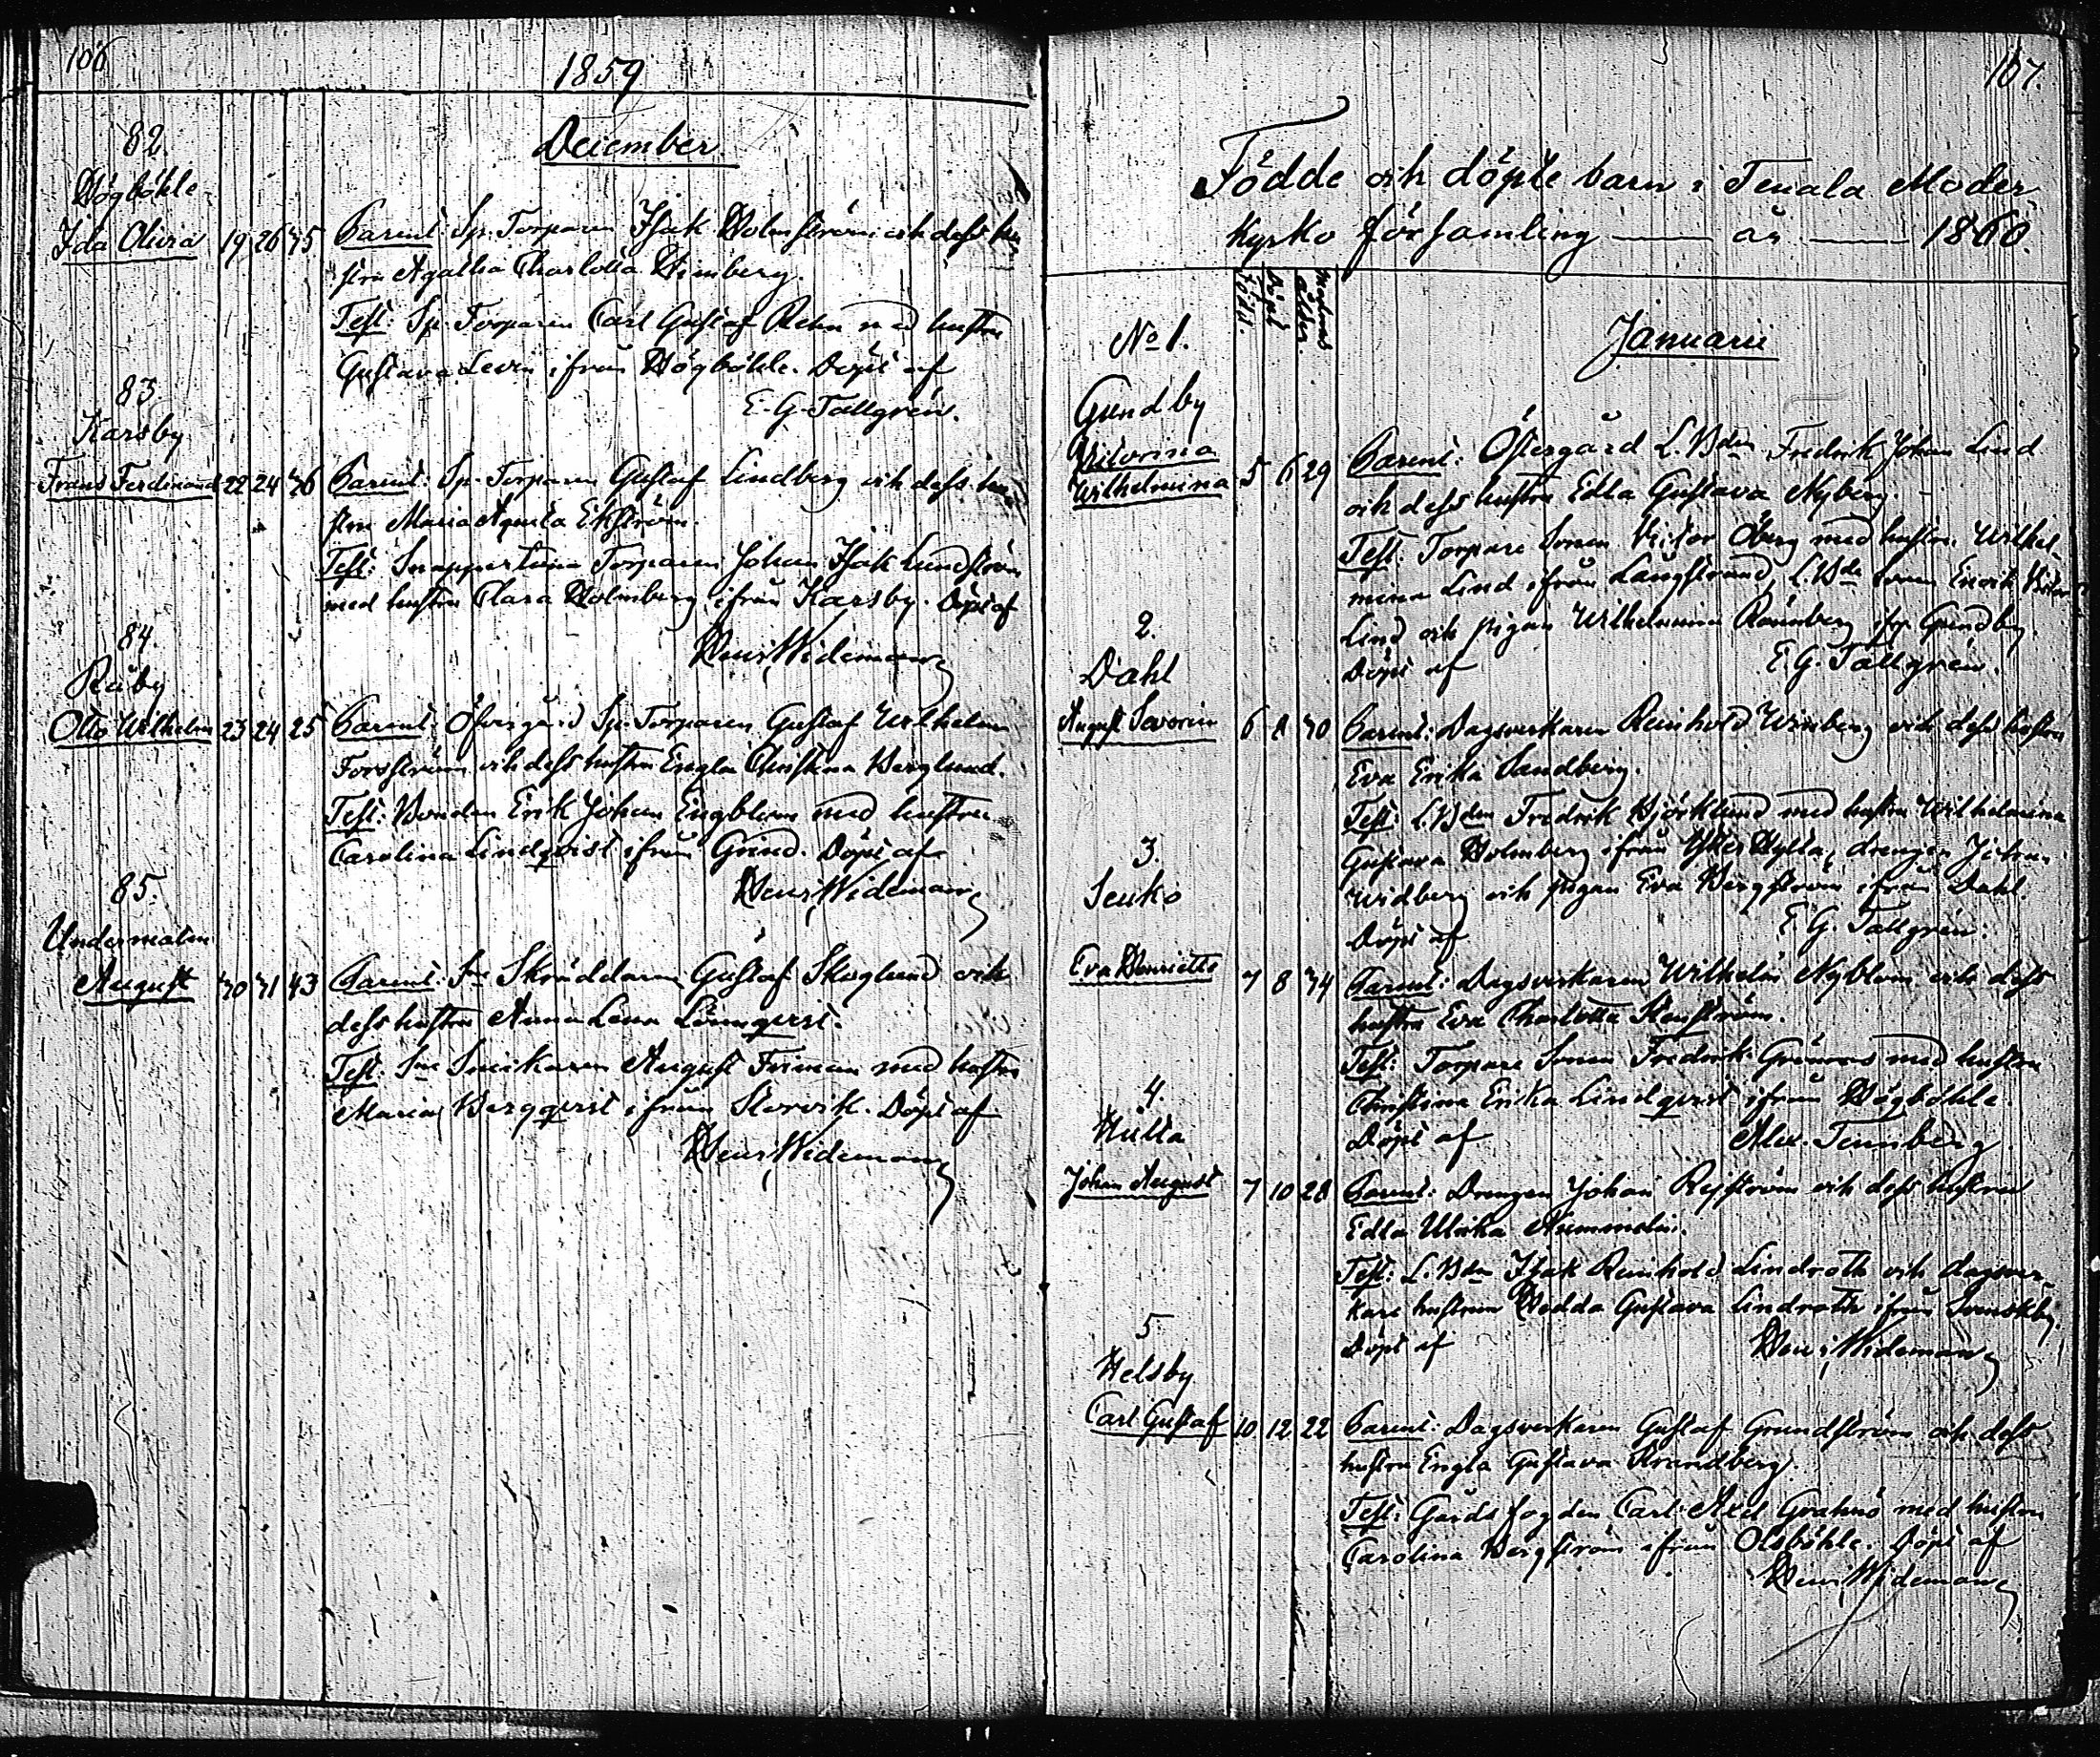 106
1859
December
82.
Högböhle
Ida Olivia 19 26 35 Parent: Sp. Torparen Isak Holmström och dess hu-
stru Agatha Charlotta Wimberg.
Test: Sp. Torparen Carl Gustaf Rehn med hustru
Gustava Levin ifrån Högböhle. Döpt af
E. G. Tallgrén.
83.
Karsby
Frans Ferdinand 22 24 36 Parent: Sp. Torparen Gustaf Lindberg och dess hu-
stru Maria Aqvila Ekström.
Test: Snappertuna Torparen Johan Isak Lundström
med hustru Clara Holmberg ifrån Karsby. Döpt af
Henr. Wideman
84.
Råby
Otto Wilhelm 23 24 25 Parent: Öfvergård Sp. Torparen Gustaf Wilhelm
Forsström och dess hustru Engla Christina Berglund.
Test: Bonden Erik Johan Engblom med hustru
Carolina Lindqvist ifrån Grind. Döpt af
Henr. Wideman
85.
Undermalm
August 30 31 43 Parent: Skräddaren Gustaf Skoglund och
dess hustru Anna Lena Lönnqvist.
Test: Snickaren August Friman med hustru
Maria Bergqvist ifrån Storvik. Döpt af
Henr. Wideman
107.
Födde och döpte barn i Tenala Moder-
kyrko församling — år — 1860
född. döpt Modrens ålder.
Januarii
No 1.
Gundby
Victorina
Wilhelmina 5 6 29 Parent: Östergård L. Bden Fredrik Johan Lind
och dess hustru Edla Gustava Nyberg.
Test: Torpare Sonen Victor Öberg med hustru Wilhel-
mina Lind ifrån Långstrand, L. Bde Sonen Enrik Victor
Lind och pigan Wilhelmina Rönnberg ifr. Gundby.
Döpt af E. G. Tallgrén.
2.
Dahl
August Severin 6 8 30 Parent: Dagsverkaren Reinhold Winberg och dess hustru
Eva Erika Sandberg.
Test: L. Bden Fredrik Björklund med hustru Wilhelmina
Gustava Holmberg ifrån Ytter Hylta, drengen Johan
Widberg och pigan Eva Bergström ifrån Dahl.
Döpt af E. G. Tallgrén.
3.
Senko
Eva Henriette 7 8 34 Parent: Dagsverkaren Wilhelm Nyblom och dess
hustru Eva Charlotta Stenström.
Test: Torpare Sonen Fredrik Grönroos med hustru
Christina Erika Lindqvist ifrån Högböhle.
Döpt af Alex. Tennberg
4.
Hülta
Johan August 7 10 28 Parent: Drengen Johan Rejström och dess hustru
Edla Ulrika Nummelin.
Test: L. Bden Isak Reinhold Lindroth och dagsver-
kare hustrun Hedda Gustava Lindroth ifrån Svenskby.
Döpt af Henr. Wideman
5
Helsby
Carl Gustaf 10 12 22 Parent: Dagsverkaren Gustaf Grundström och dess
hustru Engla Gustava Strandberg.
Test: Gårdsfogden Carl Axel Grahnö med hustru
Carolina Bergström ifrån Olsböhle. Döpt af
Henr. Wideman